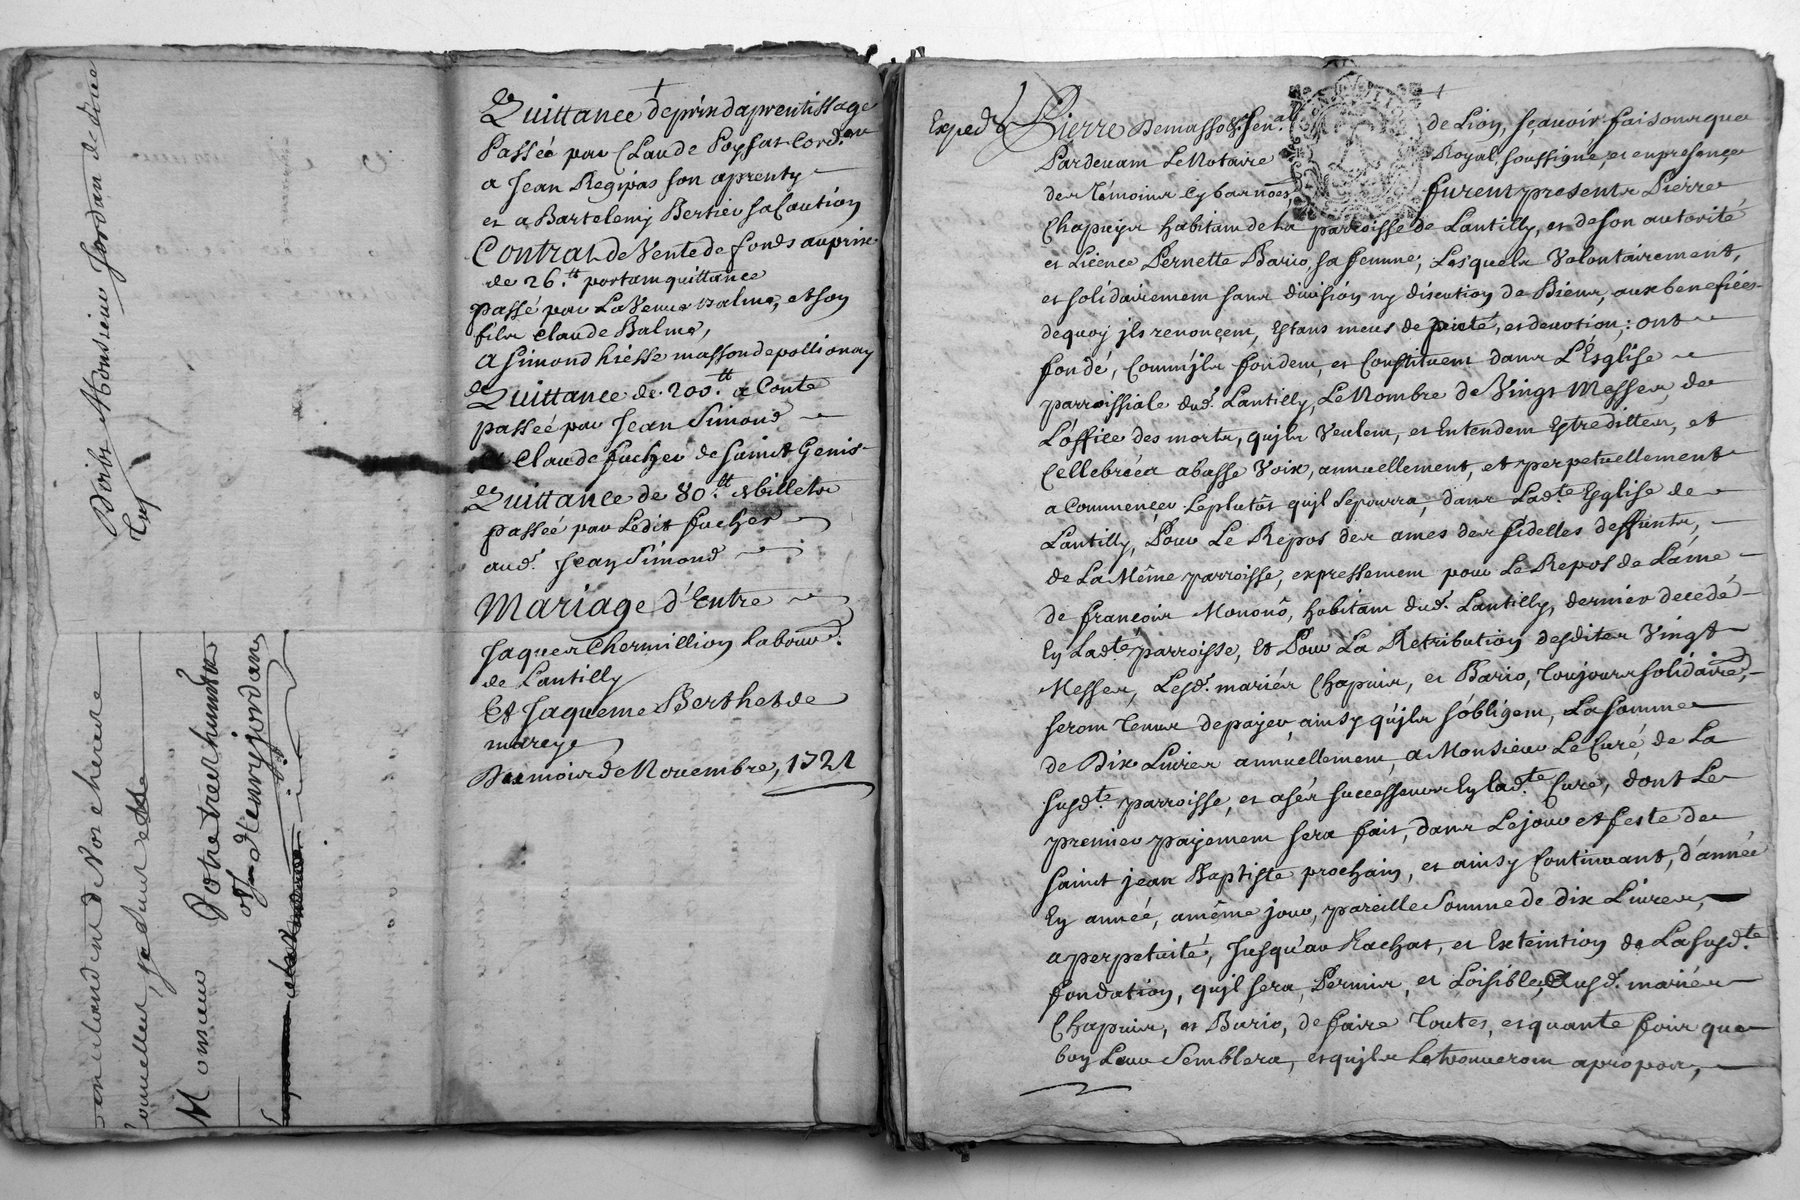 Quittance de prix d'aprentissage
Passée par Claude Poyfat Cord.
a Jean Regipas son aprenty
et a Bartelemy Bertier sa Caution
Contrat de Vente de fonds au prix
de 26.tt portant quittance
passé par La Veuve Balme, et son
fils Claude Balme,
A Simond masson de pollionay
Quittance de 200.tt a Conte
passée par Jean Simond
Claude fucher de Saint Genis
Quittance de 80.tt & billets
passée par Ledit fucher
aud. Jean Simond
Mariage d'Entre
Jaques Chermillion Labour.
de Lantilly
Et Jaqueme Berthet de
mareye
Du mois de Novembre, 1721
Exped.
Pierre Demasso &. Sen.al de Lion, sçavoir faisons que
Pardevant Le Notaire Royal, soussigné, et en presence
des Témoins cy bas noes, furent presents Pierre
Chapuys habitant de La parroisse de Lantilly, et de son autorité
et Licence Pernette Bario, sa femme, Lesquels Volontairement,
et solidairement sans division ny discution de Biens, aux benefices
de quoy ils renonçent, Estans meus de pieté, et devotion; ont
fondé, Comm'ils fondent, et Constituent dans L'Esglise
parroissiale dud. Lantilly, Le Nombre de Vingt Messes, de
L'office des morts, qu'ils Veulent, et Entendent Estre dittes, et
Cellebrées a basse Voix, annuellement, et perpetuellement
a Commencer Le plutôt qu'il se pourra, dans Lad.te Esglise de
Lantilly, Pour Le Repos des ames des fidelles deffunts,
de La Même parroisse, expressement pour Le Repos de L'ame
de francois Monoud, habitant dud. Lantilly, dernier decedé
En Lad.te parroisse, Et Pour La Retribution desdites Vingt
Messes, Lesd. mariés Chapuis, et Bario, Toujours solidaires,
seront Tenus de payer, ainsy qu'ils s'obligent, La somme
de Dix Livres annuellement, a Monsieur Le Curé, de La
susd.te parroisse, et a ses successeurs En lad.te Cure, dont Le
premier payement sera fait, dans Le jour et feste de
saint jean Baptiste prochain, et ainsy Continuant, d'année
En année, a même jour, pareille somme de dix Livres,
a perpetuité, Jusqu'au Rachat, et Exteintion de La susd.te
fondation, qu'il sera, Permis, et Loisible, Ausd. mariés
Chapuis, et Bario, de faire Toutes, et quante fois que
bon Leur Semblera, et qu'ils Le trouveront a propos,
Boire a Monsieur Jordan de dire
de Vos heure
nouvelles, je suis
Monsieur
Votre tres humble
Henry Jordan